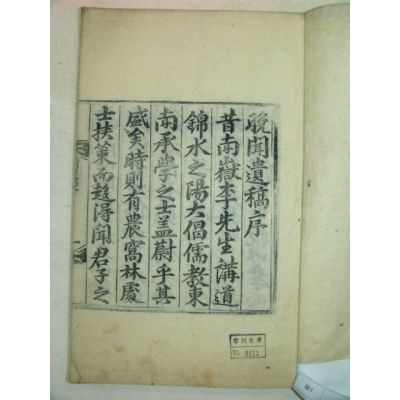 晚聞遺稿序
昔南嶽李先生講道
錦水之陽大倡儒教東
南承學之士盖蔚乎其
盛矣時則有農窩林處
士扶策而趍得聞君子之